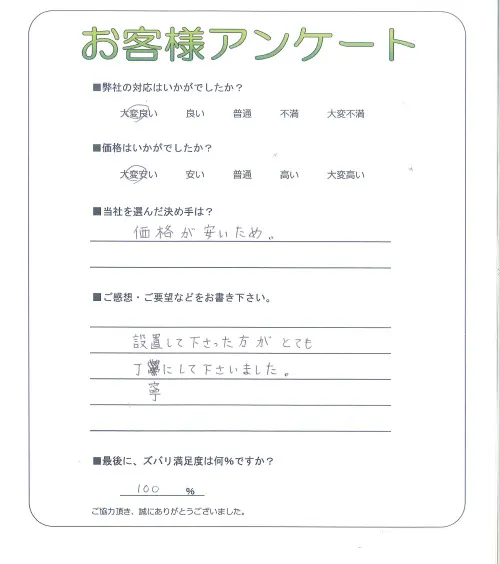 お客様アンケート
■弊社の対応はいかがでしたか？
大変良い 良い 普通 不満 大変不満
■価格はいかがでしたか？
大変安い 安い 普通 高い 大変高い
■当社を選んだ決め手は？
価格が安いため。
■ご感想・ご要望などをお書き下さい。
設置して下さった方がとても
丁にして下さいました。
寧
■最後に、ズバリ満足度は何%ですか？
100 %
ご協力頂き、誠にありがとうございました。